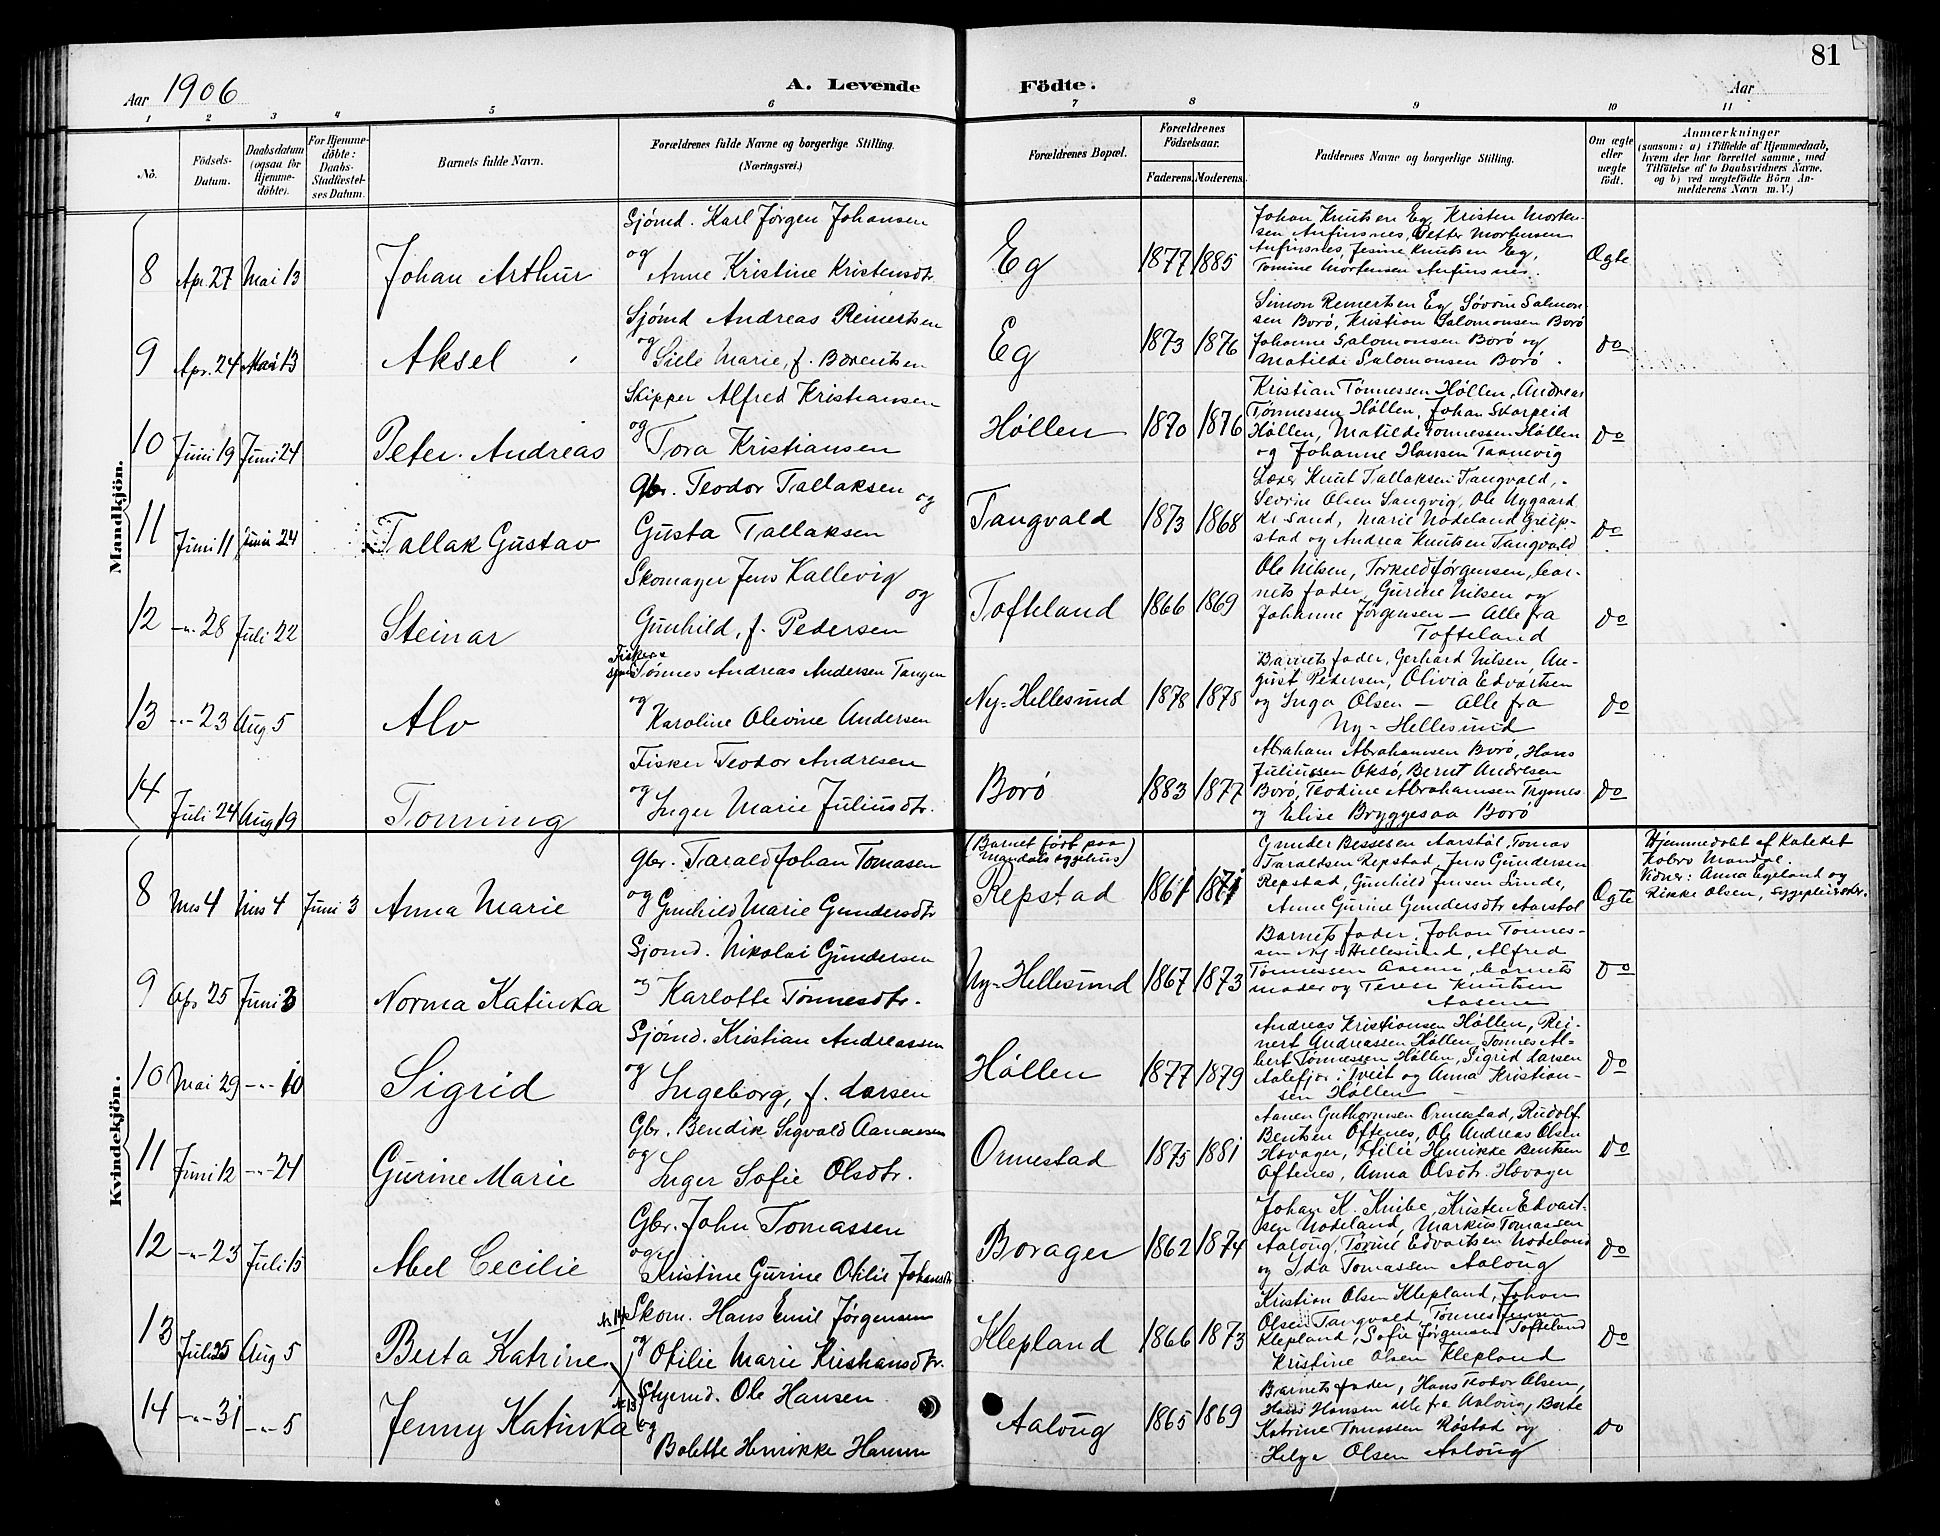 81
Aar 1906
A. Levende Födte.
Aar
1 2 3 4 5 6 7 8 9 10 11
No.
Födsels-Datum.
Daabsdatum (ogsaa for Hjemmedöbte).
For Hjemmedöbte: Daabs-Stadfæstelses Datum.
Barnets fulde Navn.
Forældrenes fulde Navne og borgerlige Stilling. (Næringsvei.)
Forældrenes Bopæl.
Forældrenes Födselsaar.
Faderens. Moderens.
Faddernes Navne og borgerlige Stilling.
Om ægte eller uægte födt.
Anmærkninger
(saasom: a) i Tilfælde af Hjemmedaab, hvem der har forrettet samme, med Tilföielse af to Daabsvidners Navne, og b) ved uægtefödte Börn Anmelderens Navn m. V.)
Mandkjön.
8 Apr. 27 Mai 13 Johan Arthur
Sjómd. Karl Jørgen Johansen
og
Anne Kristine Kristensdtr.
Eg 1877 1885
Johan Knutsen Eg, Kristen Morten-
sen Aufinsnes, Petter Mortensen
Aufinsnes, Jesine Knutsen Eg,
Tomine Mortensen Aufinsnes.
Ægte
9 Apr. 24 Mai 13 Aksel
Sjómd Andreas Reinertsen
og
Siele Marie, f. Berentsen
Eg 1873 1876
Simon Reinertsen Eg, Sóvrin Salmon-
sen Boró, Kristian Salomonsen Boró
Johanne Salomonsen Boró og
Matilde Salomonsen Boró.
do
10 Juni 19 Juni 24 Peter Andreas
Skipper Alfred Kristiansen
og
Tora Kristiansen
Hóllen 1870 1876
Kristian Tónnessen Hóllen, Andreas
Tónnessen Hóllen, Johan Skarpeid
Hóllen, Matilde Tonnessen Hóllen
og Johanne Hansen Taanevig
do
11 Juni 11 Juni 24 Tallak Gustav
Gbr. Teodor Tallaksen og
Gusta Tallaksen
Tangvald 1873 1868
Lærer Knut Tallaksen Tangvald,
Severine Olsen Langvig, Ole Nygaard
Kr.sand, Marie Nodeland Greip-
stad og Andrea Knutsen Tangvald
do
12 -"- 28 Juli 22 Steinar
Skomager Jens Kallevig
og
Gunhild, f. Pedersen
Tofteland 1866 1869
Ole Nilsen, Torkild Jørgensen, bar-
nets fader, Gurine Nilsen og
Johanne Jørgensen — Alle fra
Tofteland
do
13 -"- 23 Aug 5 Alv
Fisker
Tønnes Andreas Andersen Tangen
og
Karoline Olevine Andersen
Ny-Hellesund 1878 1878
Barnets fader, Gerhard Nilsen, Au-
gust Pedersen, Olivia Edvartsen
og Inga Olsen — Alle fra
Ny-Hellesund
do
14 Juli 24 Aug 19 Tonning
Fisker Teodor Andresen
og
Inger Marie Juliusdtr.
Boró 1883 1877
Abraham Abrahamsen Boró, Hans
Juliussen Oksó, Bernt Andresen
Boró, Teodine Abrahamsen Trysnes
og Elise Bryggesaa Boró
do
Kvindekjön.
8 Mrs 4 Mrs 4 Juni 3 Anna Marie
Gbr. Tarald Johan Tomasen
og
Gunhild Marie Gundersdtr
(Barnet født paa
Mandals sygehus)
Repstad 1861 1871
Gunder Bessesen Aarstól, Tomas
Taraldsen Repstad, Jens Gundersen
Repstad, Gunhild Jensen Linde,
Anne Gurine Gundersdtr Aarstol
Ægte
Hjemmedøbt af Kateket
Kobro Mandal.
Vidner: Anna Egeland og
Rikke Olsen, sygepleiersker.
9 Apr 25 Juni 3 Norma Katinka
Sjomd. Nikolai Gundersen
og
Karlotte Tonnesdtr.
Ny-Hellesund 1867 1873
Barnets fader, Johan Tonnes-
sen Ny-Hellesund, Alfred
Tónnessen Aasene, barnets
moder og Terese Knutsen
Aasene
do
10 Mai 29 -"- 10 Sigrid
Sjómd. Kristian Andreassen
og
Ingeborg, f. Larsen
Hóllen 1877 1879
Andreas Kristiansen Hóllen, Rei-
nert Andreassen Hóllen, Tonnes Al-
bert Tónnessen Hóllen, Sigrid Larsen
Aalefjær i Tveit og Anna Kristian-
sen Hóllen
do
11 Juni 12 -"- 24 Gurine Marie
Gbr. Bendik Sigvald Aanensen
og
Inger Sofie Olsdtr.
Ormestad 1875 1881
Aanen Guthormsen Ormestad, Rudolf
Bentsen Oftenes, Ole Andreas Olsen
Hovager, Otilie Henrikke Bentsen
Oftenes, Anna Olsdtr. Hovager
do
12 -"- 23 Juli 15 Abel Cecilie
Gbr. John Tomassen
og
Kristine Gurine Otilie Johansdtr
Borager 1862 1874
Johan K. Knibe, Kristen Edvart-
sen Nodeland, Markus Tomassen
Aaloug, Torine Edvartsen Nodeland
og Ida Tomassen Aaloug
do
13 Juli 25 Aug 5 Berta Katrine
No 14
Skom. Hans Emil Jørgensen
og
Otilie Marie Kristiansdtr.
Klepland 1866 1873
Kristian Olsen Klepland, Johan
Olsen Tangvald, Tonnes Jensen
Klepland, Sofie Jørgensen Tofteland
Kristine Olsen Klepland
do
14 -"- 31 -"- 5 Jenny Katinka
No 13
Styrmd. Ole Hansen
og
Bolette Henrikke Hansen
Aaloug 1865 1869
Barnets fader, Hans Teodor Olsen,
Hans Hansen alle fra Aaloug, Berte
Katrine Tomassen Róstad og
Helga Olsen Aaloug
do